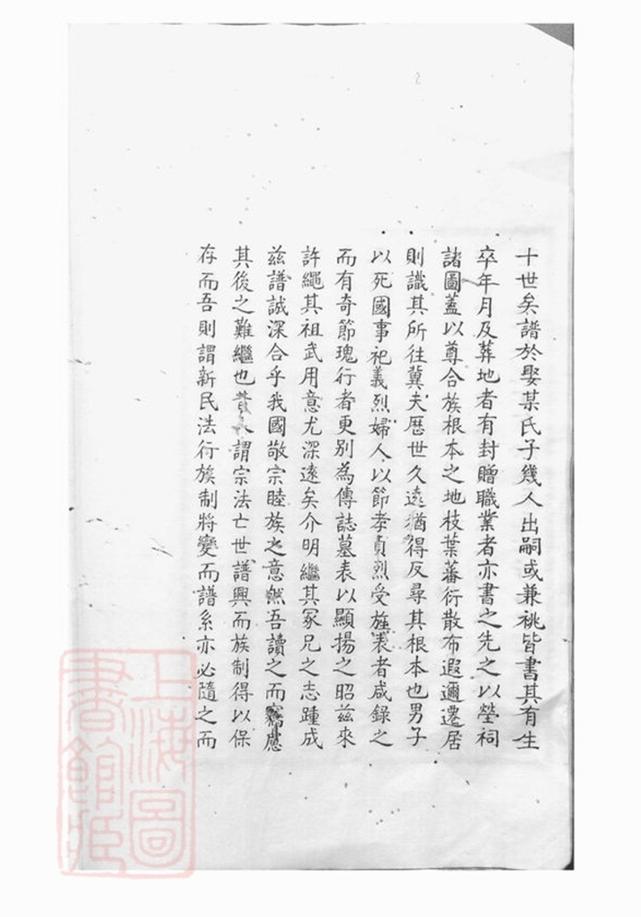 十世矣譜於娶某氏子幾人出嗣或兼祧皆書其有生
卒年月及葬地者有封贈職業者亦書之先之以塋祠
諸圖蓋以尊合族根本之地枝葉蕃衍散布遐邇遷居
則識其所往冀夫歷世久遠猶得反尋其根本也男子
以死國事祀義烈婦人以節孝貞烈受旌表者咸錄之
而有奇節瑰行者更別為傳誌墓表以顯揚之昭茲來
許繩其祖武用意尤深遠矣介明繼其冢兄之志踵成
茲譜誠深合乎我國敬宗睦族之意然吾讀之而竊慮
其後之難繼也昔人謂宗法亡世譜興而族制得以保
存而吾則謂新民法行族制將變而譜系亦必隨之而
上海圖書館藏